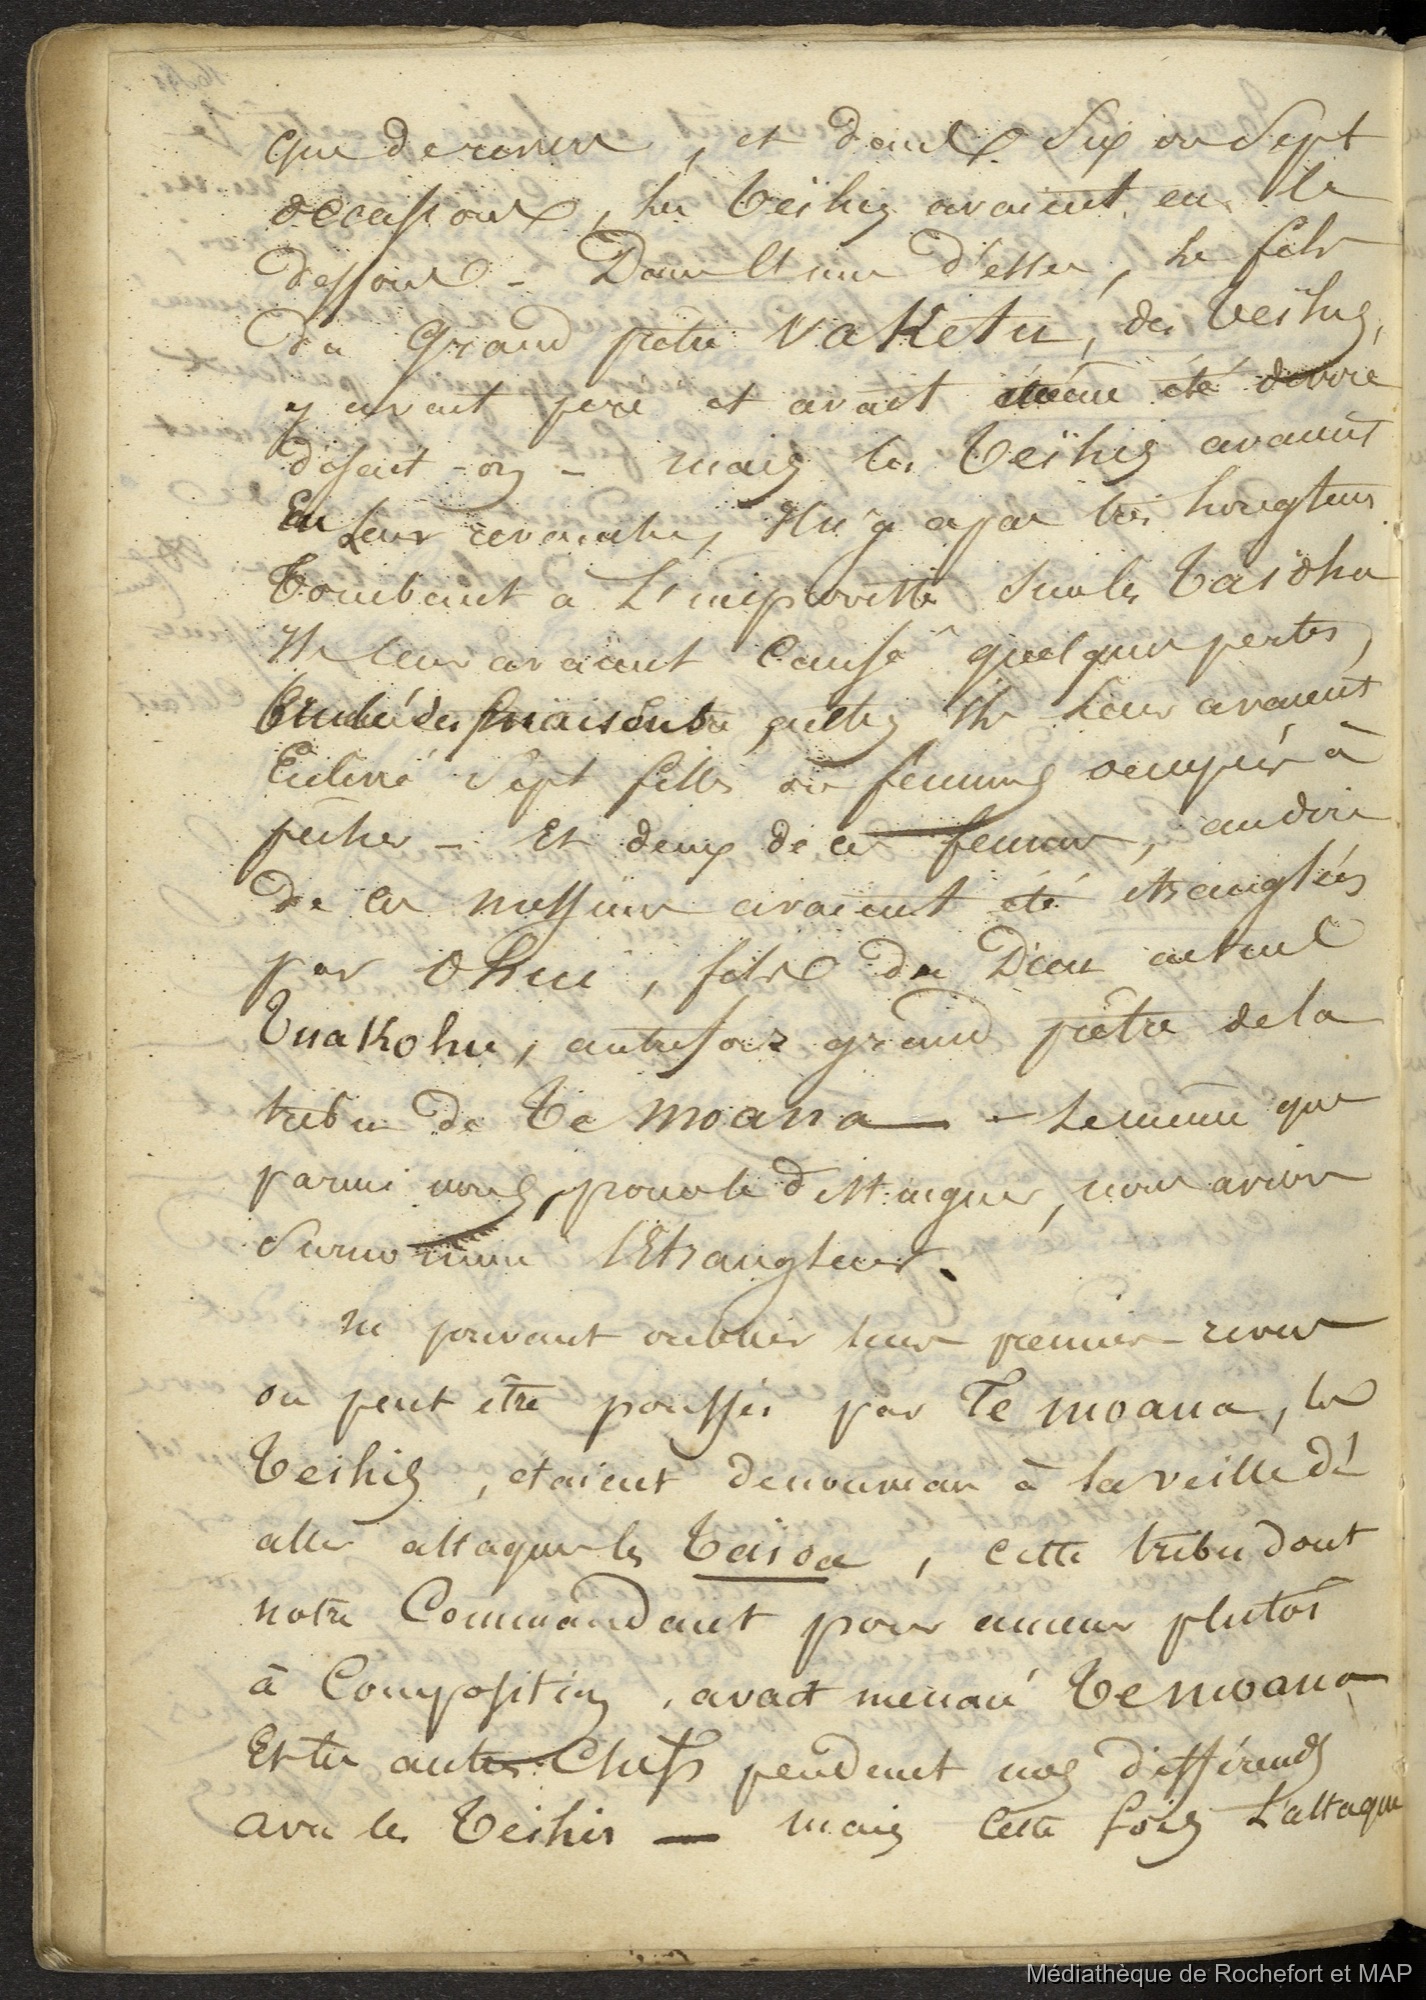 que de revers, et dans six ou sept
occasions, les Teïhis avaient eu le
dessous - Dans l'une d'elles, le fils
du Grand prêtre Vaketu, des Teïhis,
y avait péri et avait même été dévoré
disait-on - mais les Teïhis avaient
Eu Leur revanche, Il n'y a pas très longtems
Tombant à L'improviste sur les Taïoha
Ils leur avaient causé quelques pertes,
brulé des maisons Ils leur avaient
Enlevé sept filles ou femmes occupées à
pêcher - Et deux de ces femmes, au dire
de ces messieurs avaient été étranglées
par Ohui, fils du Dieu actuel
Tuakohu, autrefois grand prêtre de la
tribu de Te moana - Le même que
parmi nous, pour le distinguer, nous avions
Surnommé l'Etrangleur.
Ne pouvant oublier leurs premiers revers
ou peut être poussés par Te moana, les
Teihis, étaient denouveau à la veille d'
aller attaquer les Taïoa, cette tribu dont
notre Commandant pour amener plutôt
à Composition, avait menacé Te moana
Et les autres Chefs pendant nos différends
avec les Teihis - mais cette fois L'attaque
Médiathèque de Rochefort et MAP